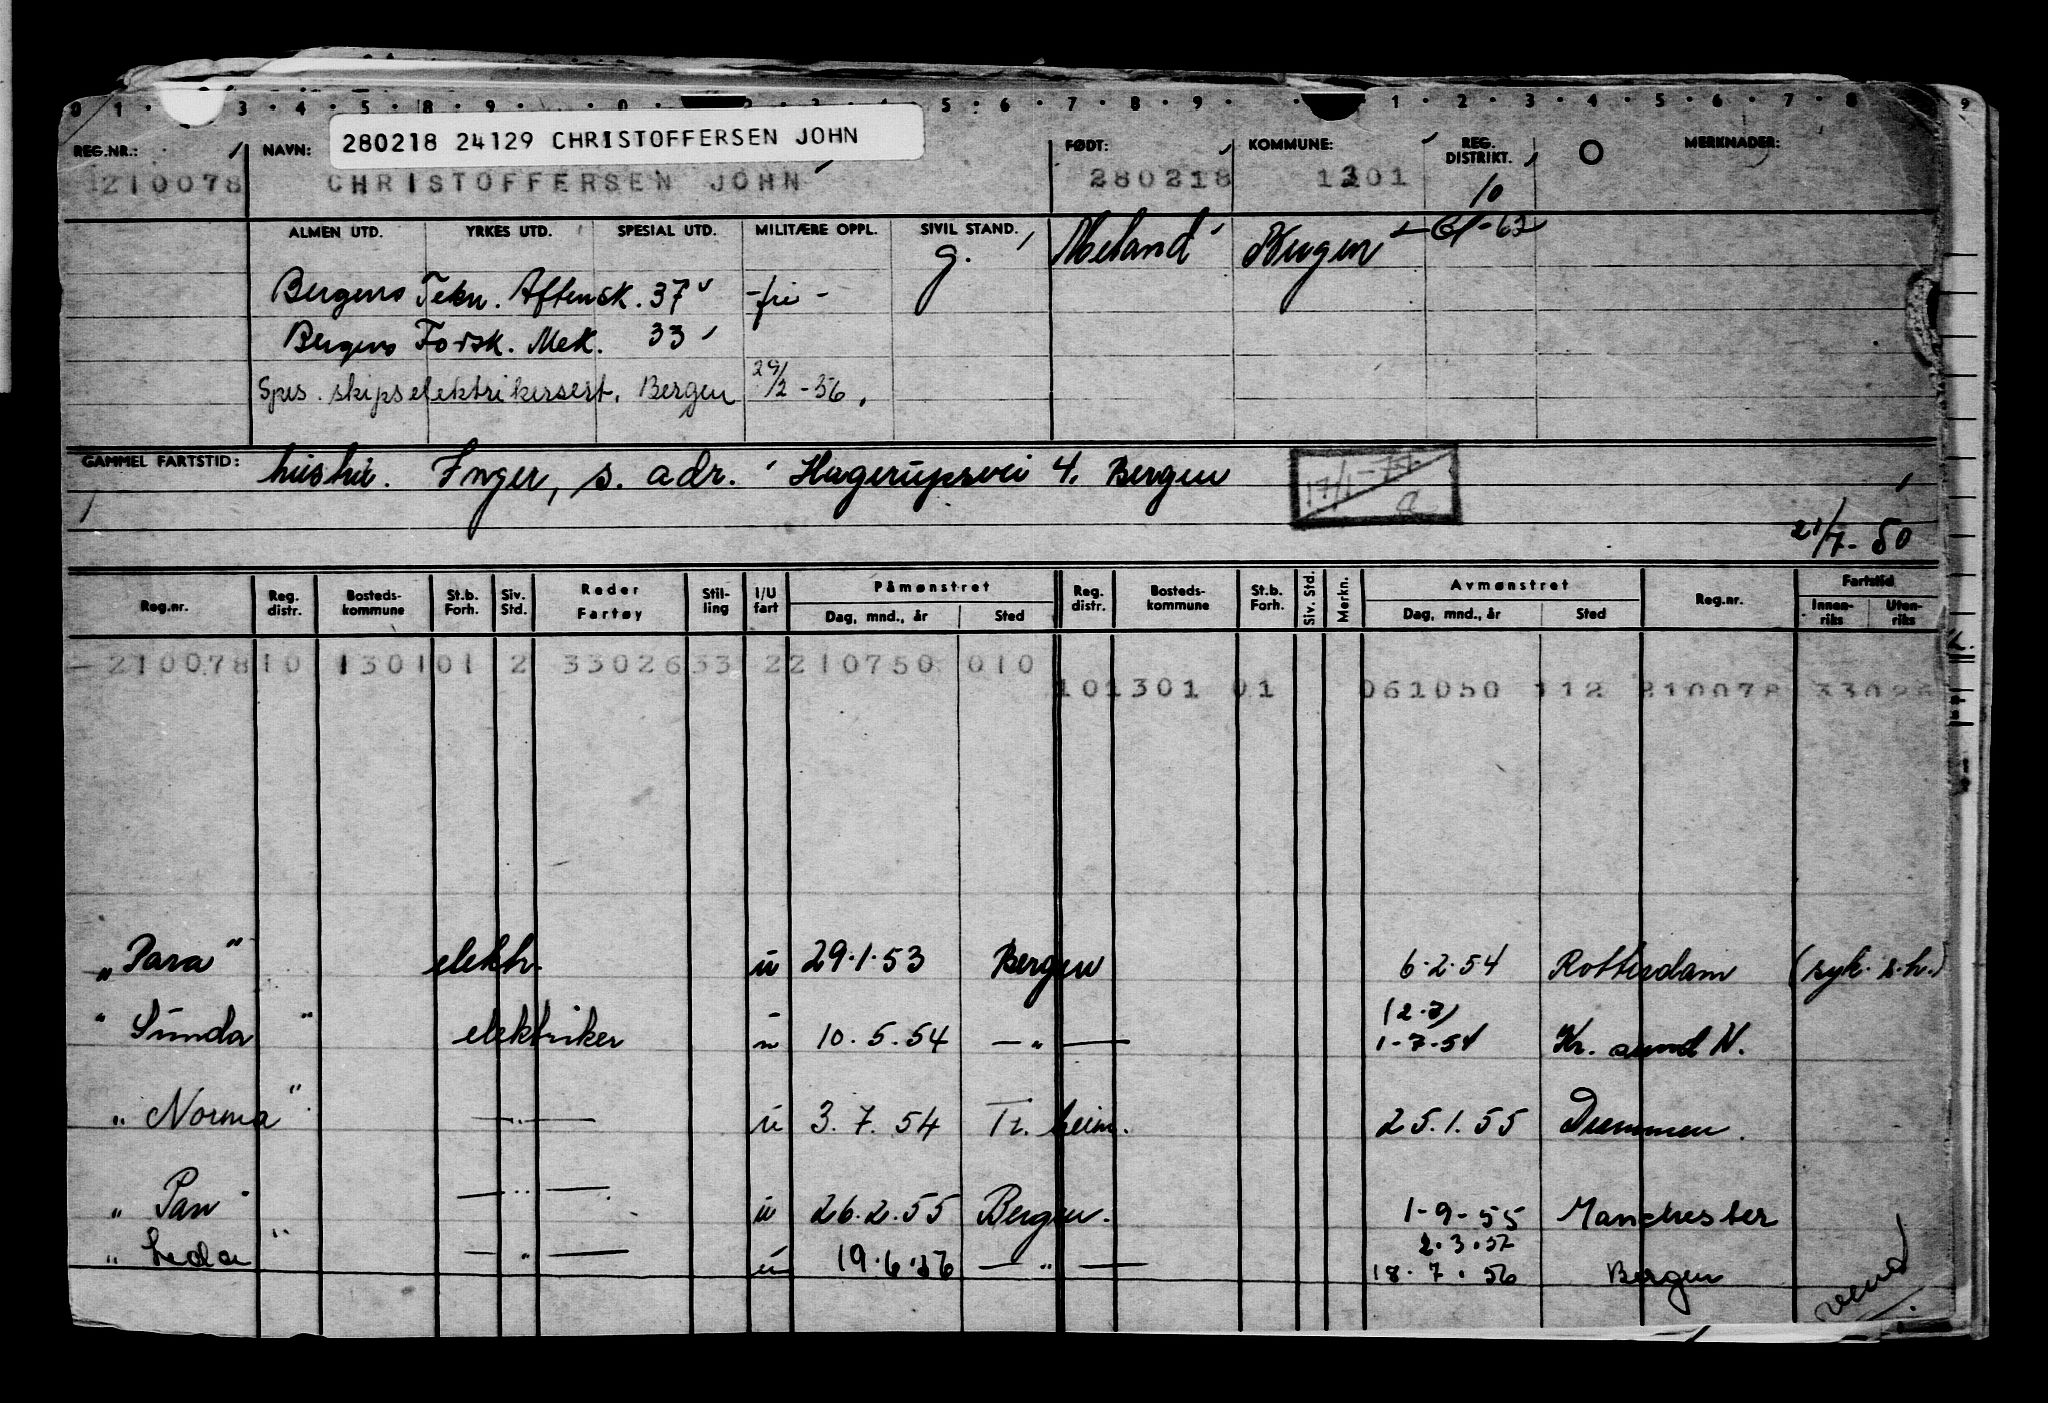 280218 24129 CHRISTOFFERSEN JOHN
REG.NR.: NAVN: FØDT: KOMMUNE: REG. DISTRIKT. MERKNADER:
210078 CHRISTOFFERSEN JOHN 280218 1301 10
ALMEN UTD. YRKES UTD. SPESIAL UTD. MILITÆRE OPPL. SIVIL STAND.
g. Meland Bergen
Bergens Tekn. Aftensk. 37 -fri-
Bergens Forsk. Mek. 33
Spes. skipselektrikersert. Bergen 29/2-56.
GAMMEL FARTSTID: hustru. Inger, s. adr. Hagerupsvei 4. Bergen
21/7-50
Reg.nr. Reg. distr. Bosteds-kommune St.b. Forh. Siv. Std. Reder Fartøy Stil-ling I/U fart Påmønstret Reg. distr. Bosteds-kommune St.b. Forh. Siv. Std. Merkn. Avmønstret Reg.nr. Fartstid
Dag, mnd., år Sted Dag, mnd., år Sted Innen-riks Uten-riks
- 210078 10 1301 01 2 33026 33 2 210750 010
101301 01 061050 112 210078 33026
„Para" elektr. u 29.1.53 Bergen 6.2.54 Rotterdam (syk. s.h.)
" Sunda " elektriker u 10.5.54 — " — 1-7-54 Kr. sund N.
„ Norma" — " — u 3.7.54 Tr. heim. 25.1.55 Drammen.
„ Pan" — " — u 26.2.55 Bergen. 1-9-55 Manchester
2.3.57
„ Leda " — " — u 19.6.56 — " — 18.7.56 Bergen
vend